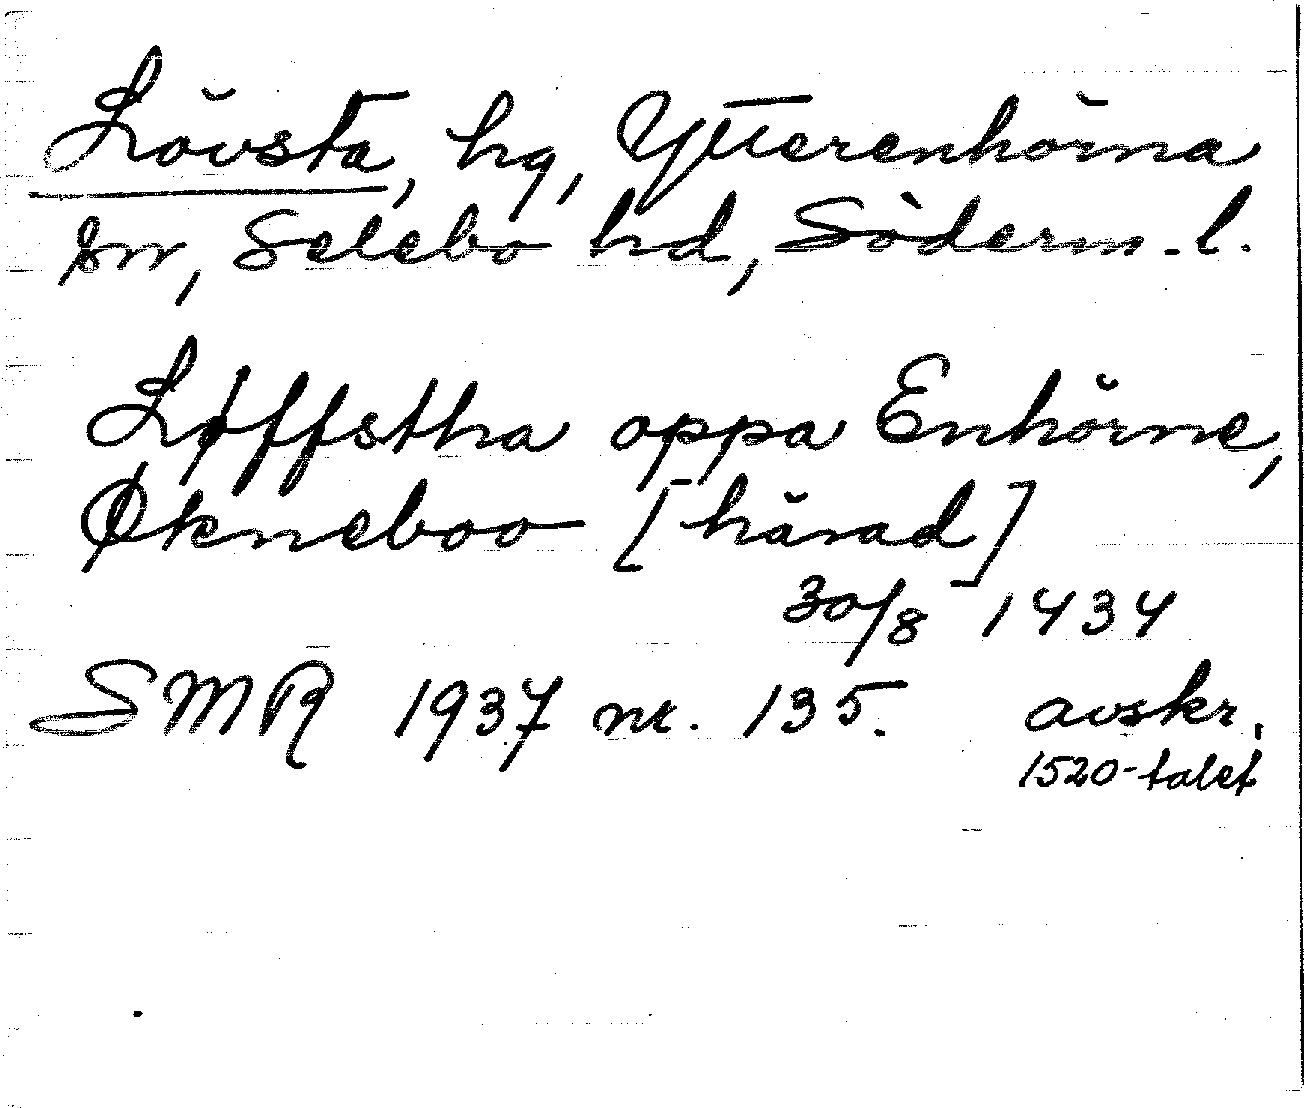 Lövsta, hg, Ytterenhörna
sn, Selebo hd, Söderm. l.
Løffstha oppa Enhörne,
Økneboo [härad]
30/8 1434
SMR 1937 nr. 135. avskr.
1520-talet